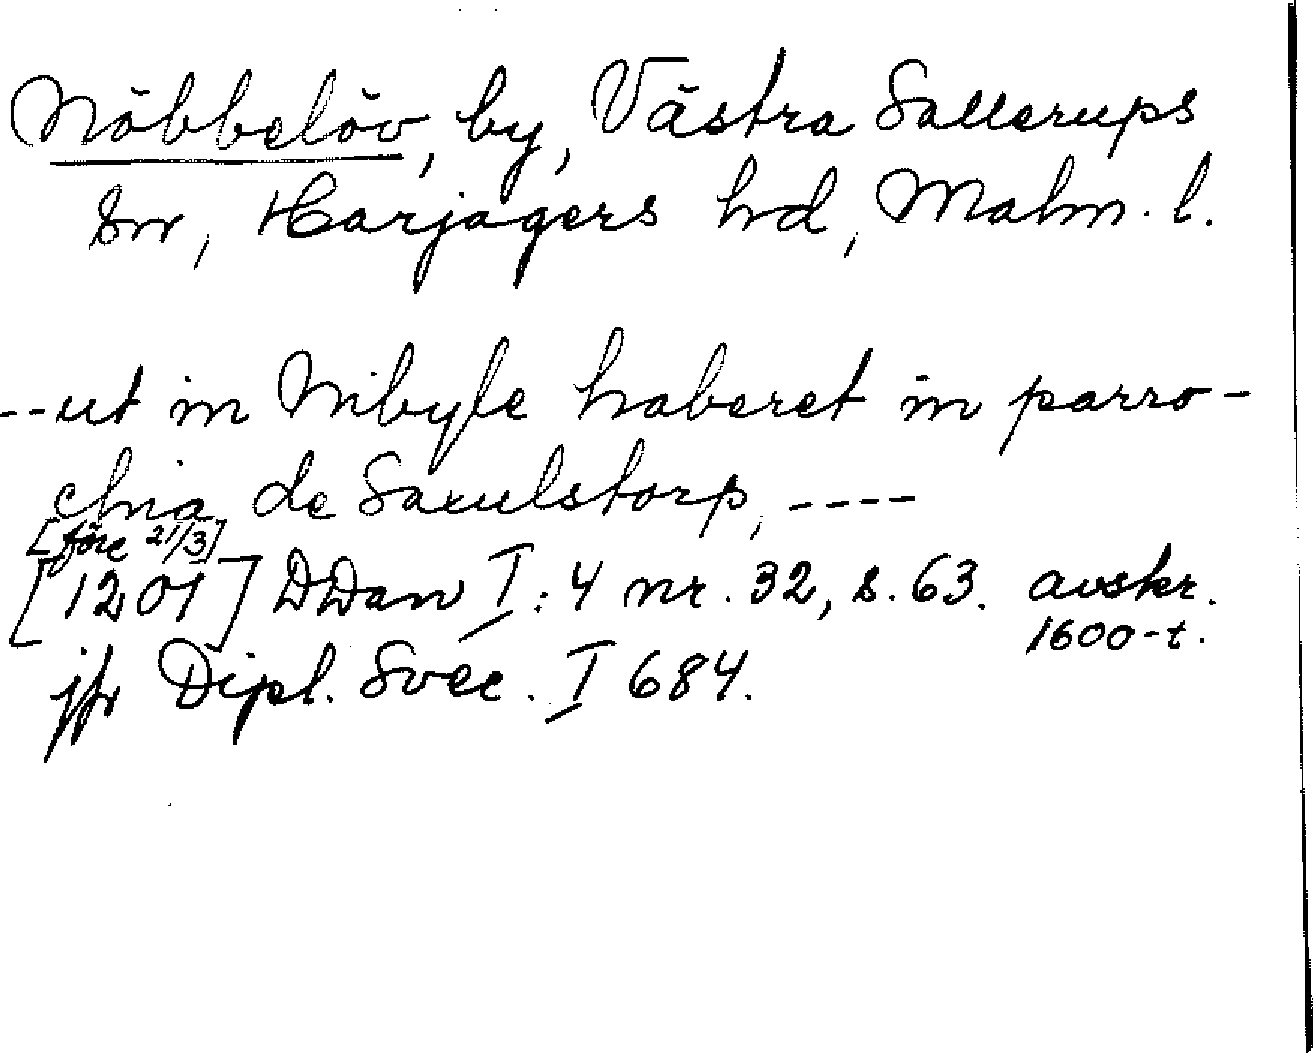 Nöbbelöv, by, Västra Sallerups
sn, Harjagers hd, Malm. l.
--ut in Nibyle haberet in parro-
chia de Saxulstorp, ----
[före 21/3]
[1201] DDan I:4 nr. 32, s. 63. avskr.
1600-t.
jfr Dipl. Svec. I 684.